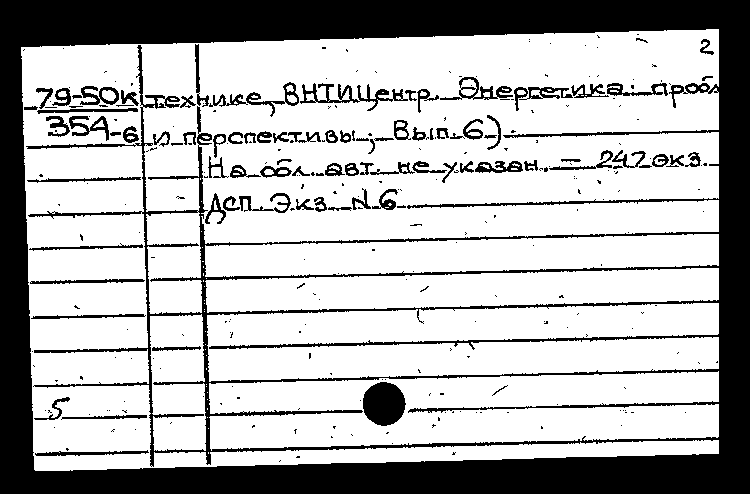 2
79-50к технике, ВНТИЦентр. Энергетика: пробл
354-6 и перспективы; Вып. 6).
На обл. авт. не указан. — 247 экз.
Дсп. Экз. N 6
5